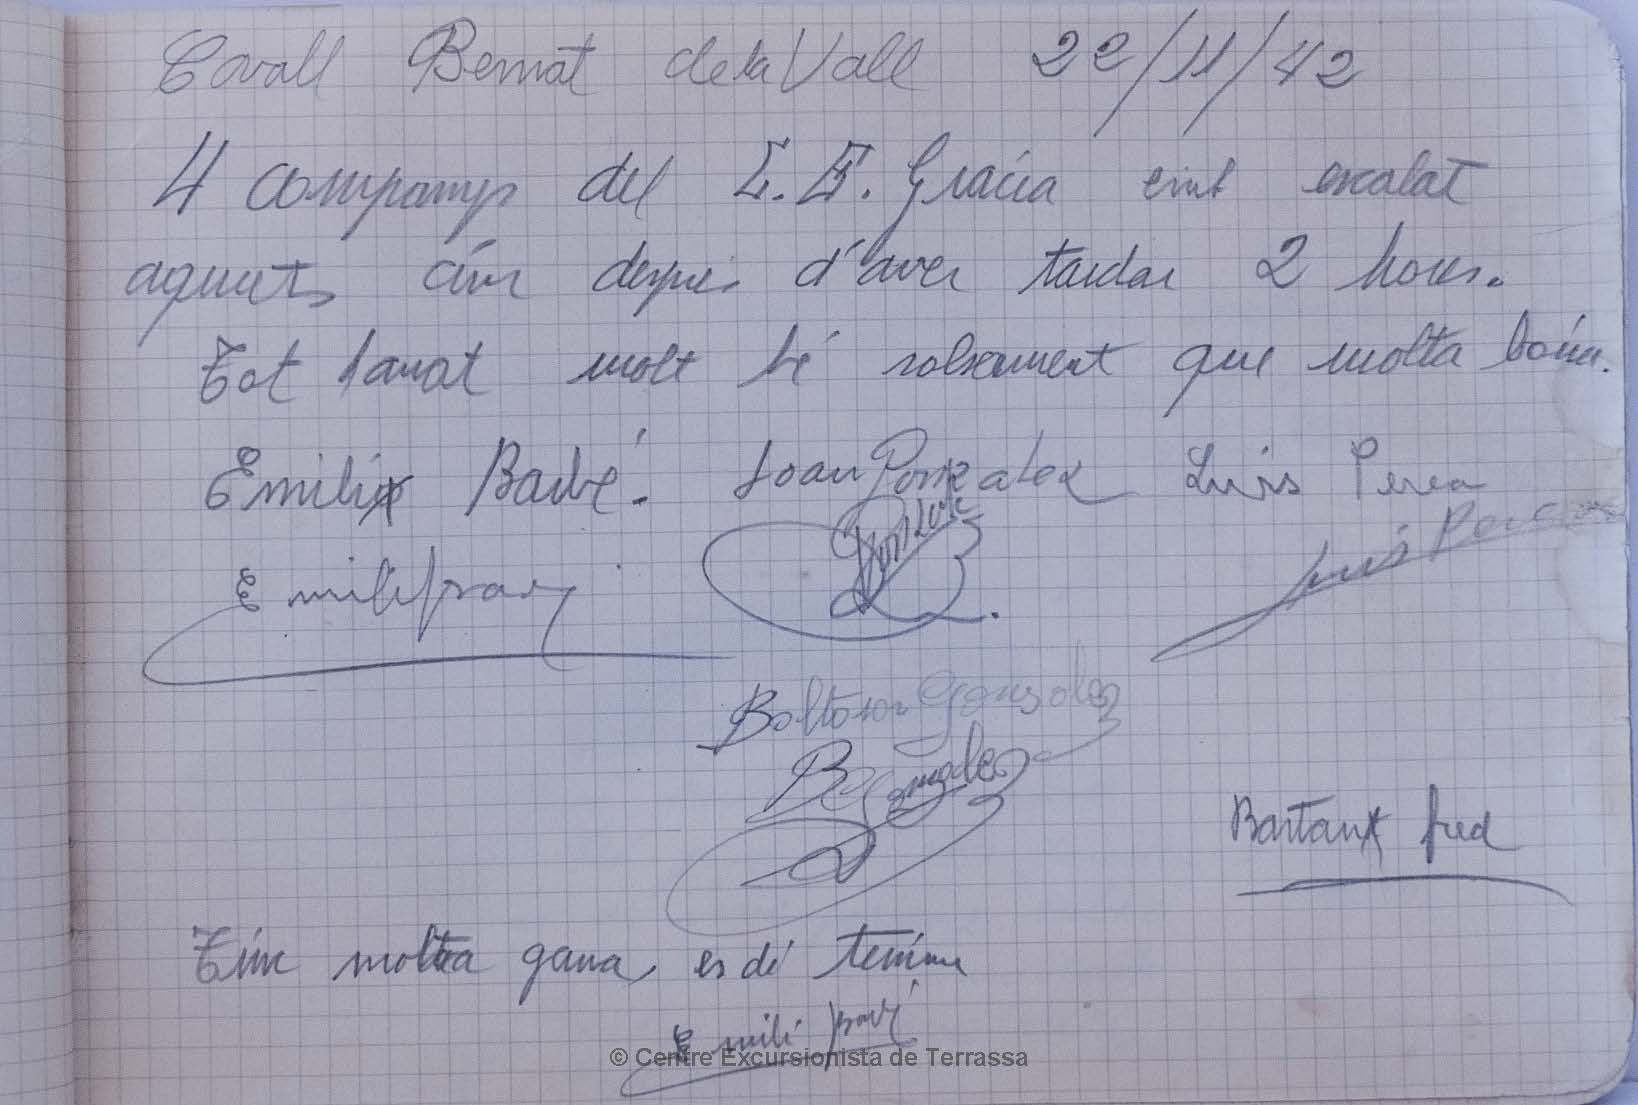 Cavall Bernat de la Vall 22/11/42
4 companys del C.E. Gràcia em escalat
aquets cim despres d'aver tardar 2 hores.
Tot hanat molt bé solsament que molta boira.
Emili Barbé. Joan Gonzalez Luis Perea
González Luis Perea
Baltasar Gonzalez
B Gonzalez
Bastant fred
Tinc molta gana, es dí tenim
Emili
© Centre Excursionista de Terrassa